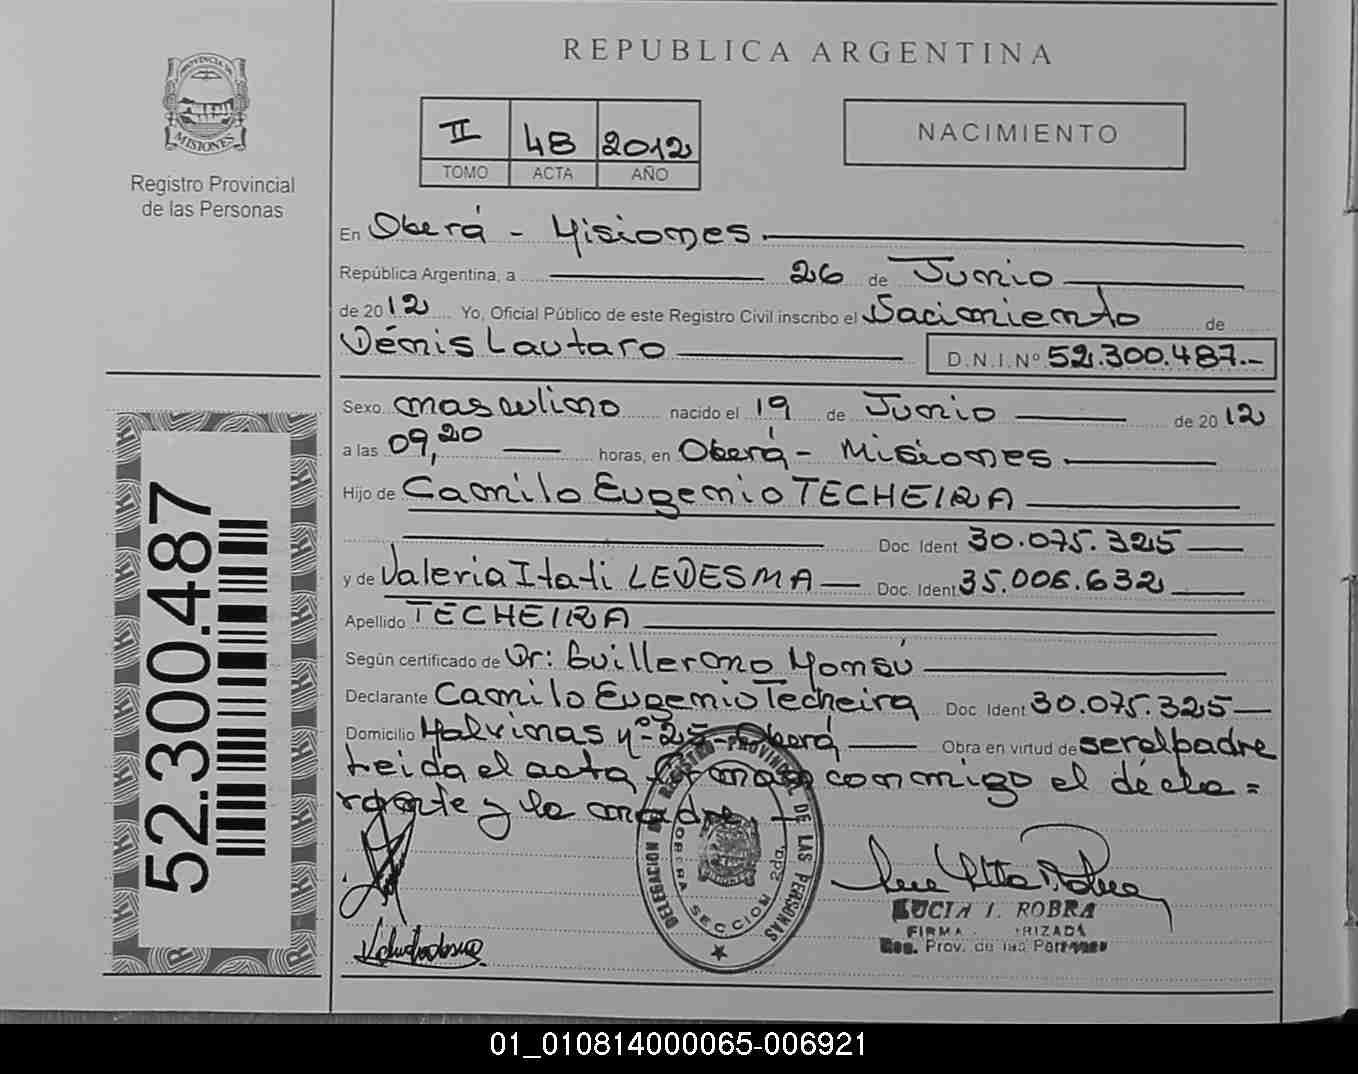 REPUBLICA ARGENTINA
PROVINCIA DE
MISIONES
Registro Provincial
de las Personas
II 48 2012
TOMO ACTA AÑO
NACIMIENTO
En Oberá - Misiones
República Argentina, a 26 de Junio
de 2012 Yo, Oficial Público de este Registro Civil inscribo el Nacimiento de
Dénis Lautaro D.N.I. Nº 52.300.487.-
Sexo masculino nacido el 19 de Junio de 2012
a las 09,20 horas, en Oberá - Misiones
Hijo de Camilo Eugenio TECHEIRA
Doc. Ident 30.075.325
y de Valeria Itati LEDESMA Doc. Ident. 35.006.632
Apellido TECHEIRA
Según certificado de Dr: Guillermo Monsú
Declarante Camilo Eugenio Techeira Doc. Ident. 30.075.325
Domicilio Malvinas nº 25 - Oberá Obra en virtud de ser el padre
Leida el acta, firman conmigo el decla=
rante y la madre.
52.300.487
DELEGACION DEL REGISTRO PROVINCIAL DE LAS PERSONAS
OBERA SECCION 2da.
LUCIA I. ROBRA
FIRMA RIZADA
Reg. Prov. de las Personas
01_010814000065-006921